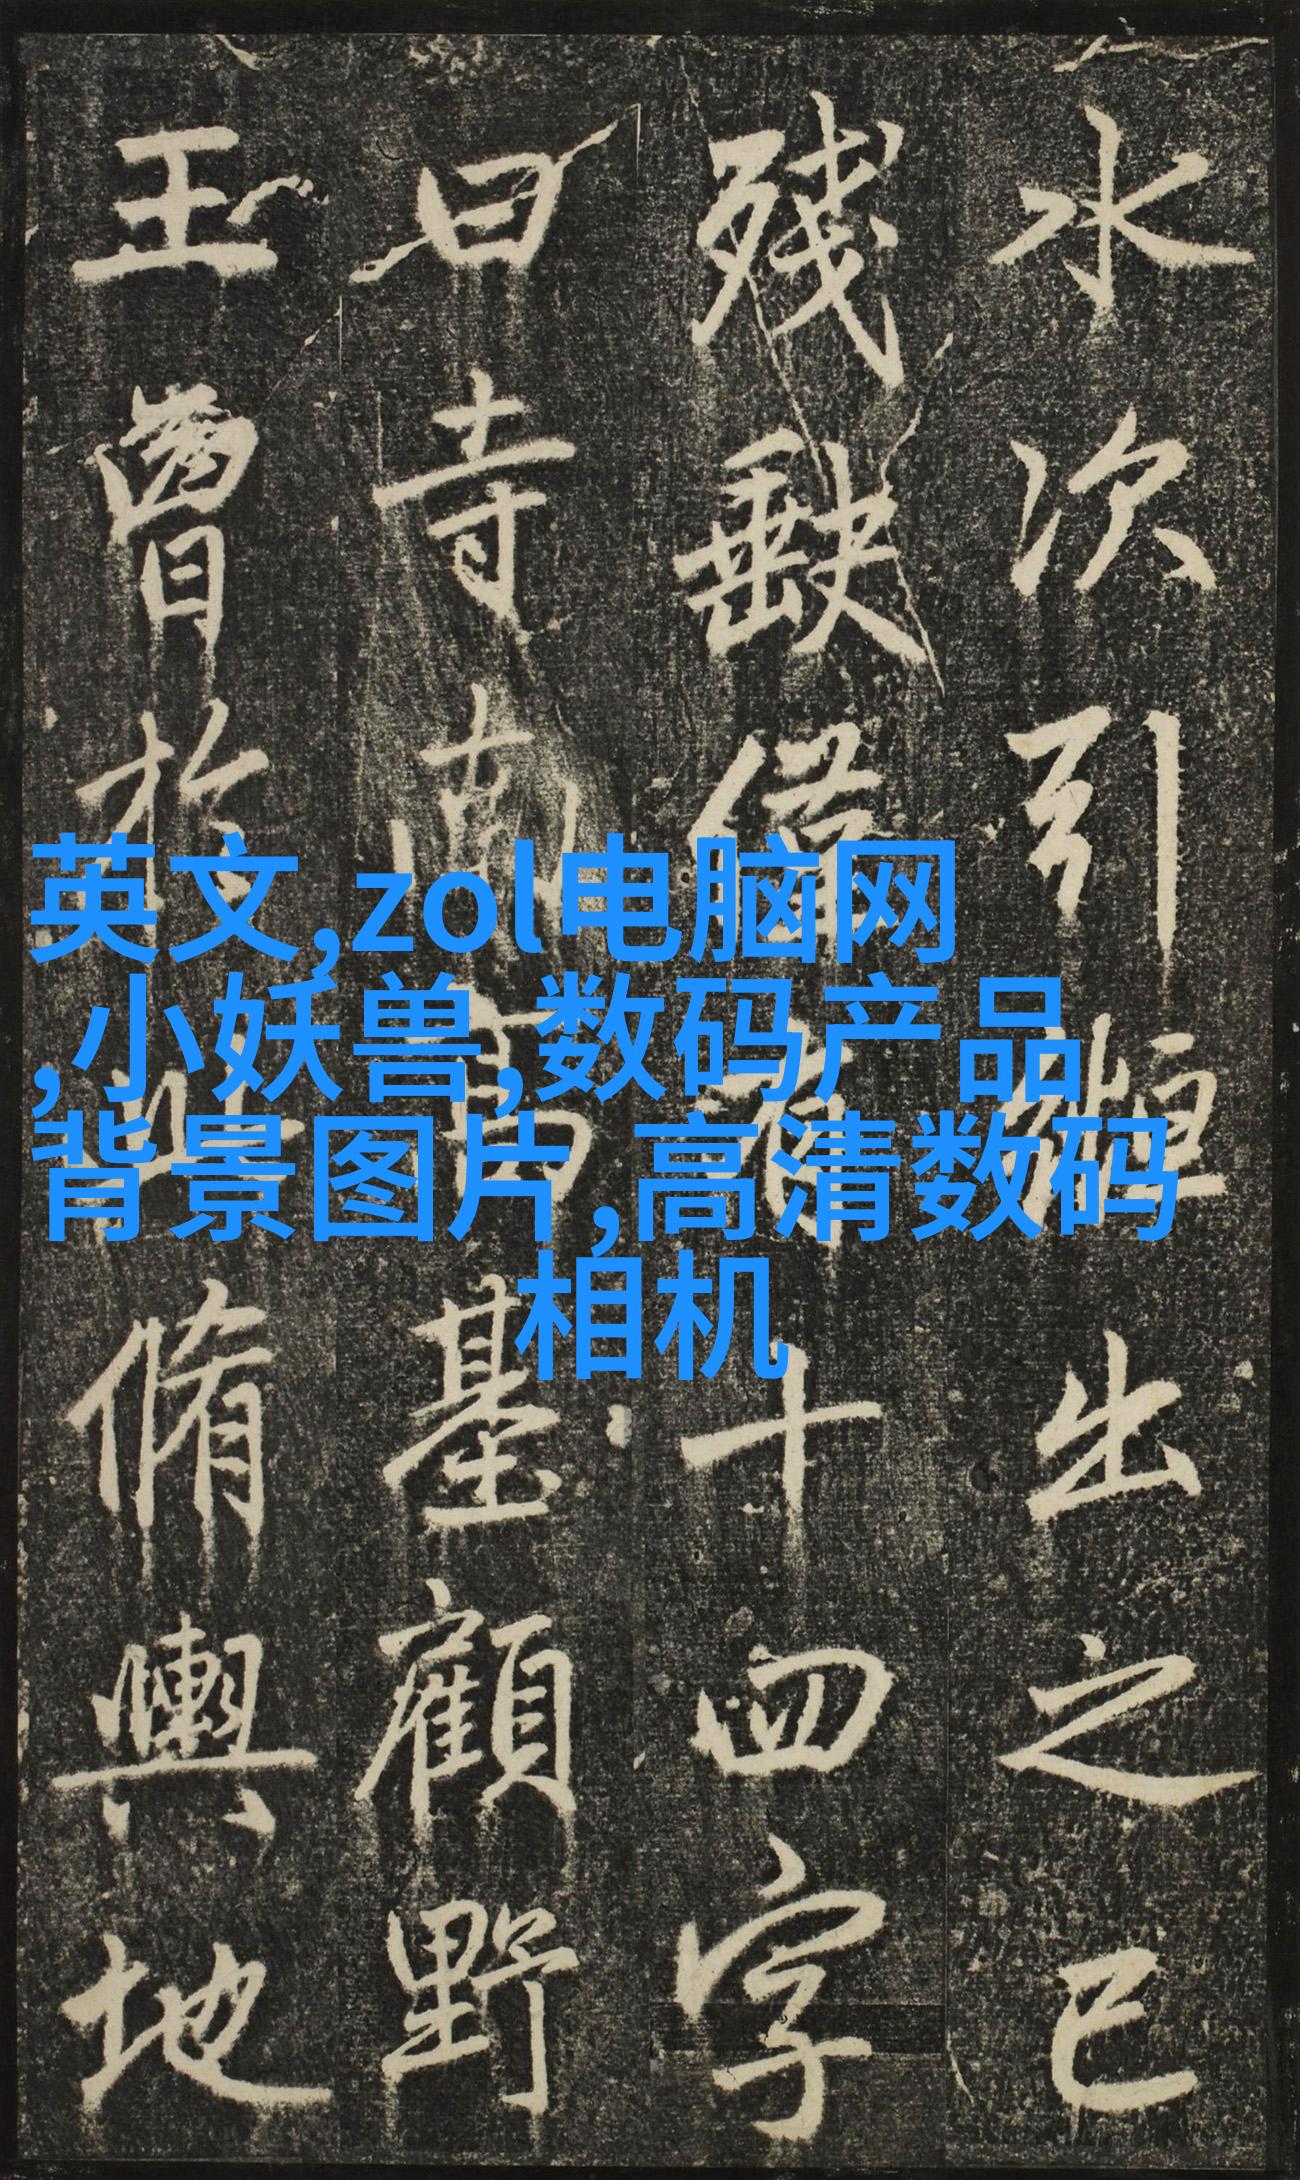 水次引縆出之已
残缺僅存十四字
曰寺南高基顧野
王曾於此脩輿地
英文,zol电脑网
,小妖兽,数码产品
背景图片,高清数码
相机